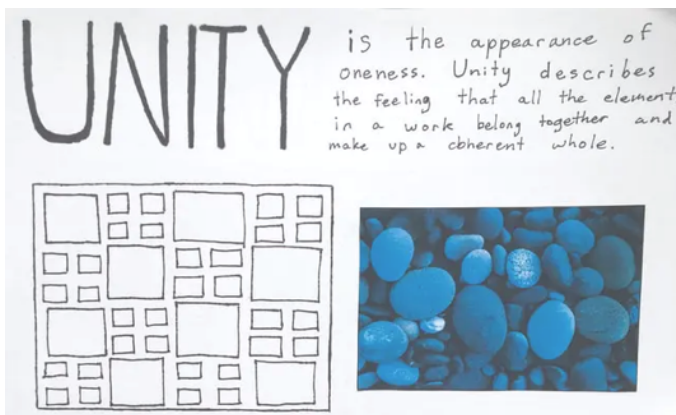 UNITY
is the appearance of
oneness. Unity describes
the feeling that all the element
in a work belong together and
make up a coherent whole.